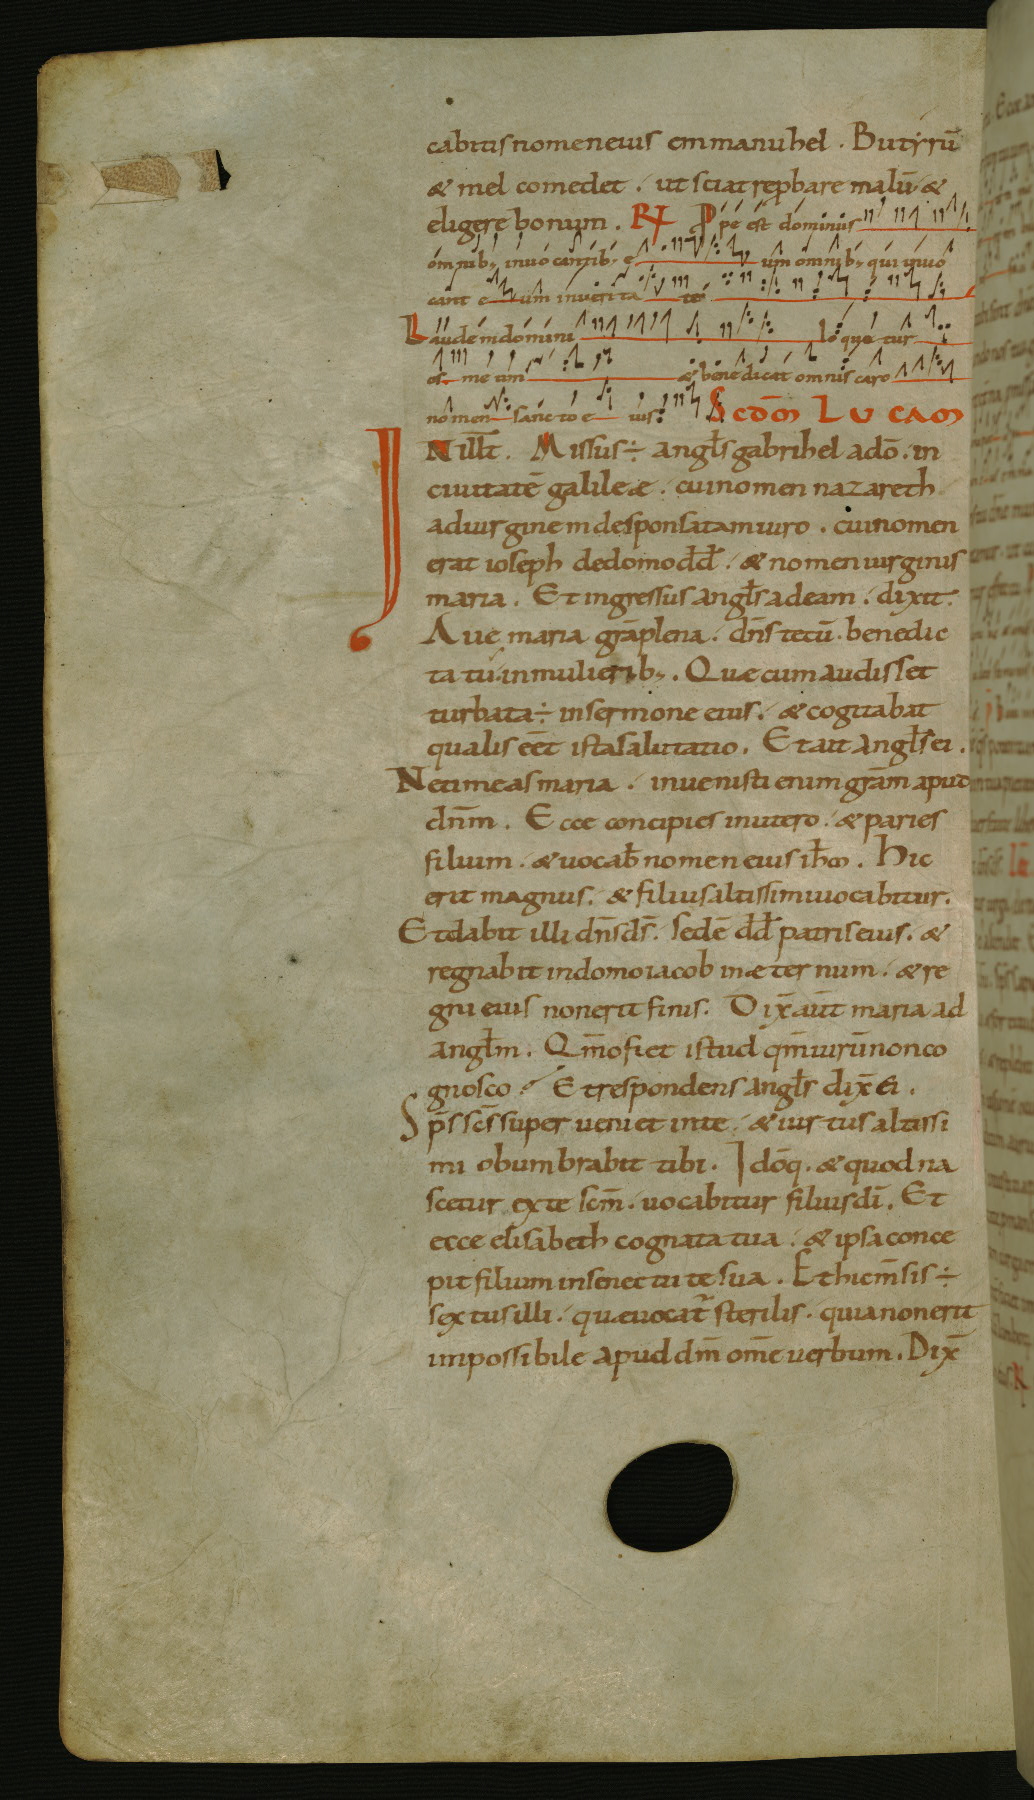 cabitis nomen eius emmanuhel . Butyrū
& mel comedet . ut sciat repbare malū &
eligere bonum . R̸ Ꝓpe est dominus
omnib; invocantib; e um omnib; qui invo
cant e um inverita te
Laudem domini loque tur
os me um & benedicat omnis caro
nomen sancto e ius . Scdm LUCAM
IN illt̄ . Missus ÷ angl̄s gabrihel adō . in
ciuitatē galileæ . cui nomen nazareth
ad uirginem desponsatam uiro . cui nomen
erat ioseph de domo dd̄ . & nomen uirginis
maria . Et ingressus angl̄s ad eam . dixit .
Aue maria grā plena . dn̄s tecū . benedic
ta tu in mulierib; . Quæ cum audisset
turbata ÷ in sermone eius . & cogitabat
qualis eēt ista salutatio . Et ait angl̄s ei .
Ne timeas maria . invenisti enim grām apud
dn̄m . Ecce concipies in utero . & paries
filium . & uocab̄ nomen eius ih̄m . Hic
erit magnus . & filius altissimi uocabitur .
Et dabit illi dn̄s ds̄ . sedē dd̄ patris eius . &
regnabit in domo iacob in æternum . & re
gni eius non erit finis . Dix̄ aūt maria ad
angl̄m . Qm̄o fiet istud qm̄ uirū non co
gnosco . Et respondens angl̄s dix̄ ei .
Sp̄s sc̄s superueniet in te . & uirtus altissi
mi obumbrabit tibi . Idōq . & quod na
scetur ex te scm̄ . uocabitur filius dī . Et
ecce elisabeth cognata tua . & ipsa conce
pit filium in senectute sua . Et hic m̄sis ÷
sextus illi . quæ uocat̄ sterilis . quia non erit
impossibile apud dm̄ om̄e uerbum . Dix̄